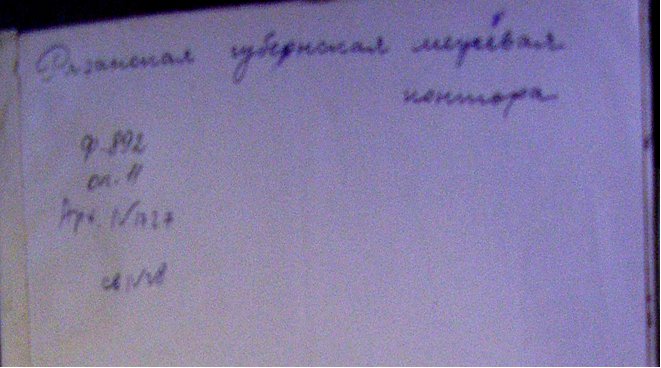 Рязанская губернская межевая
контора
ф. 892
оп. 11
Арх.